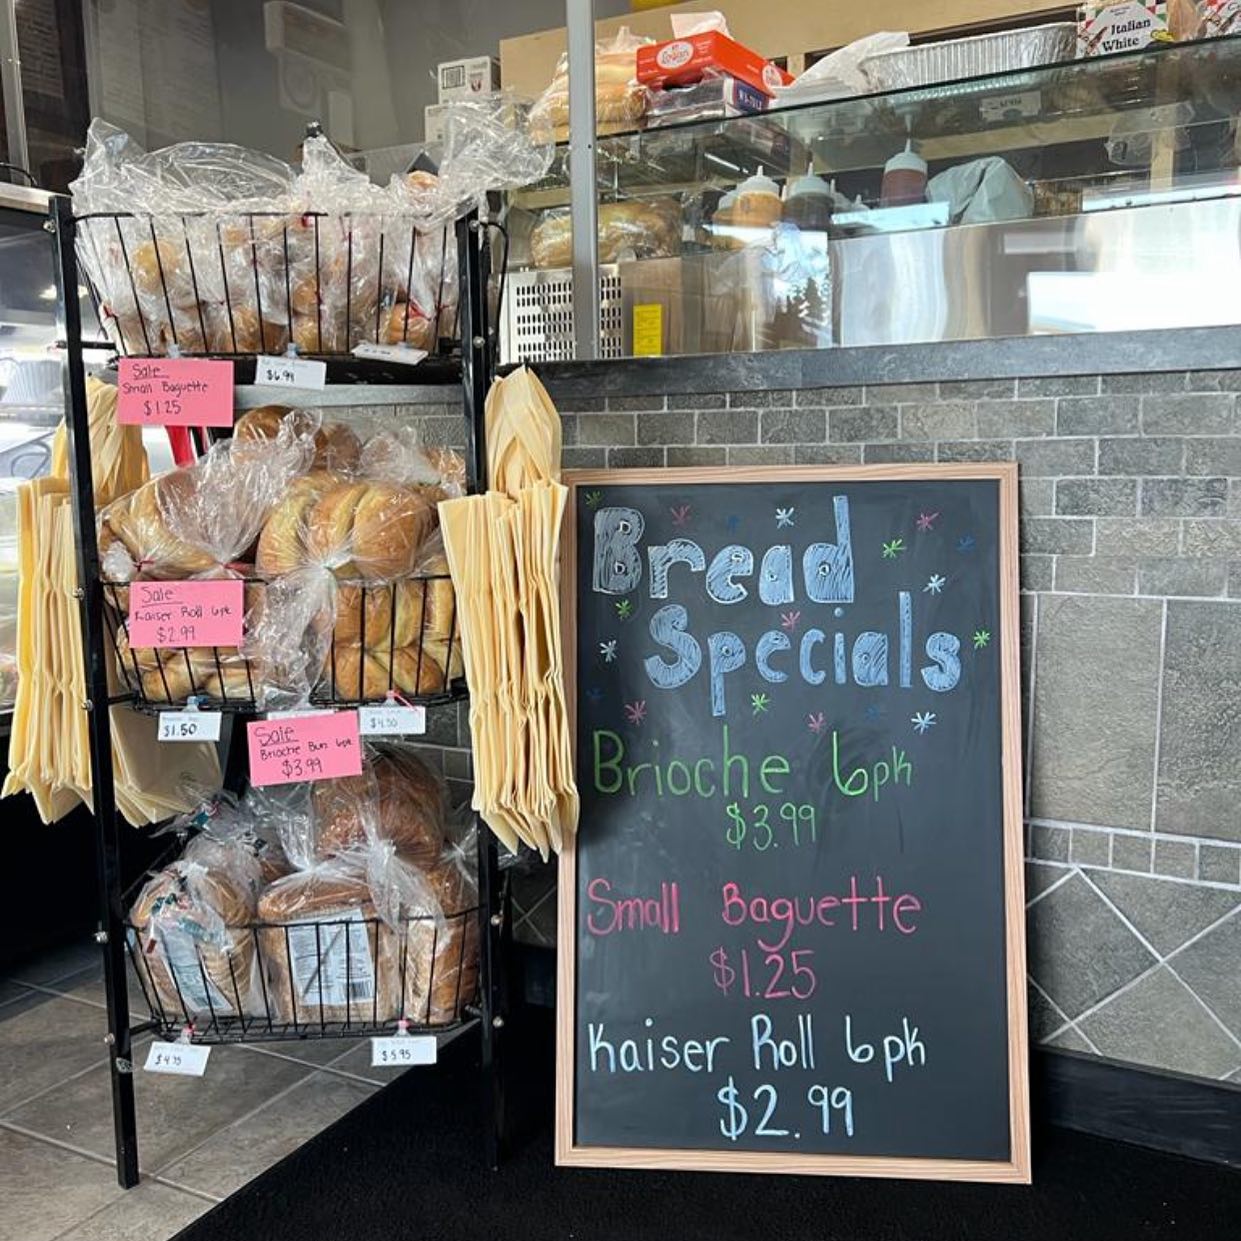 Italian
White
Sale
Small Baguette
$1.25
$6.99
Sale
Kaiser Roll 6pk
$2.99
$1.50
$4.50
Sale
Brioche Bun 6pk
$3.99
$5.95
Bread
Specials
Brioche 6pk
$3.99
Small Baguette
$1.25
Kaiser Roll 6pk
$2.99